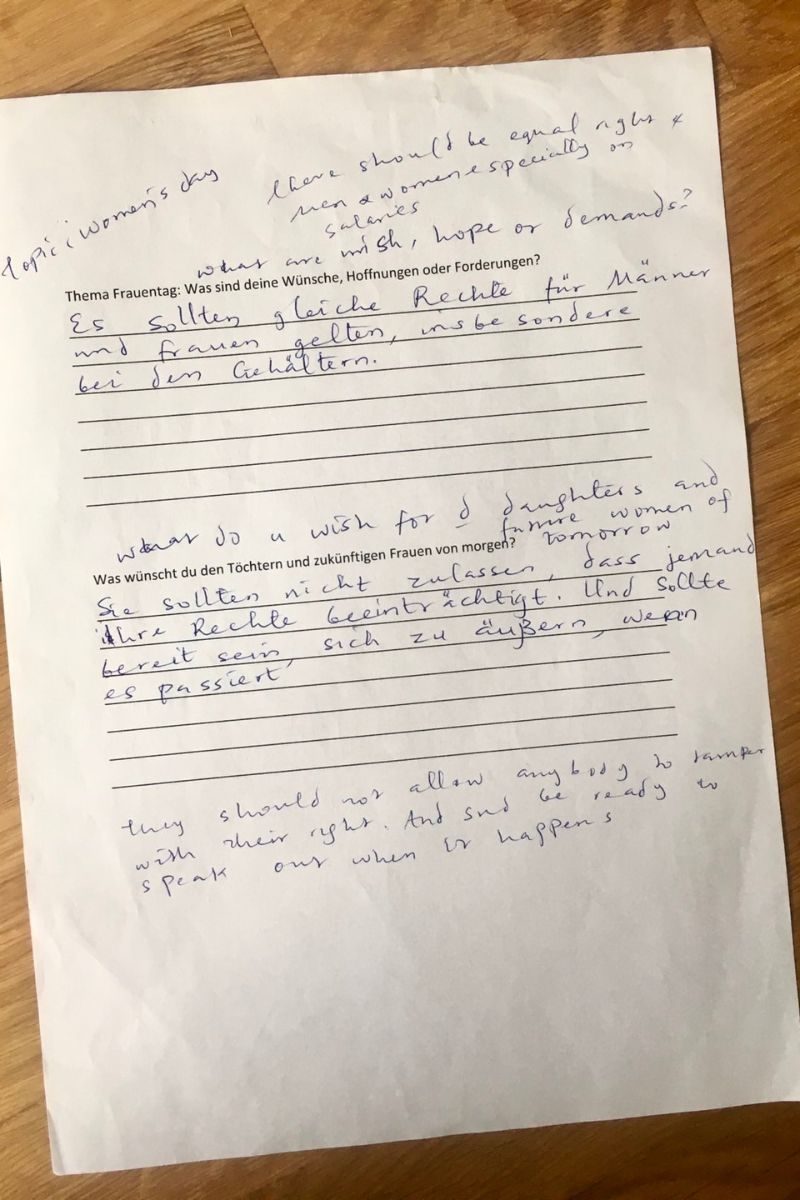 Topic: Women's day
there should be equal right &
Men & women especially on
salaries
what are wish, hope or demands?
Thema Frauentag: Was sind deine Wünsche, Hoffnungen oder Forderungen?
Es sollten gleiche Rechte für Männer
und frauen gelten, insbesondere
bei den Gehältern.
what do u wish for d daughters and
future women of
tomorrow
Was wünscht du den Töchtern und zukünftigen Frauen von morgen?
Sie sollten nicht zulassen, dass jemand
ihre Rechte beeinträchtigt. Und sollte
bereit sein, sich zu äußern, wenn
es passiert
they should not allow anybody to tamper
with their right. And snd be ready to
speak out when it happens